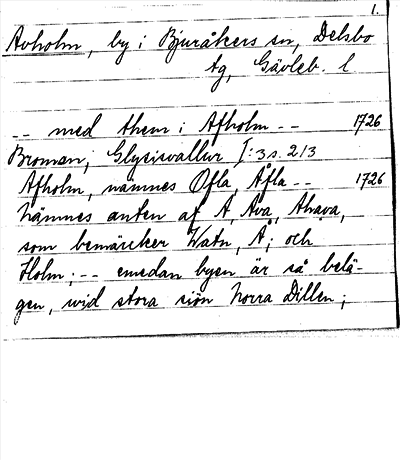 1.
Avholm, by i Bjuråkers sn, Delsbo
tg, Gävleb. l
-- med them i Afholm -- 1726
Broman, Glysisvallur I:3 s. 213
Afholm, namnes Øfla, Åfla -- 1726
Nämnes anten af A, Ava, Ahava,
som bemärcker Watn, Å; och
Holm; -- emedan byen är så belä-
gen, wid stora siön Norra Dillen;